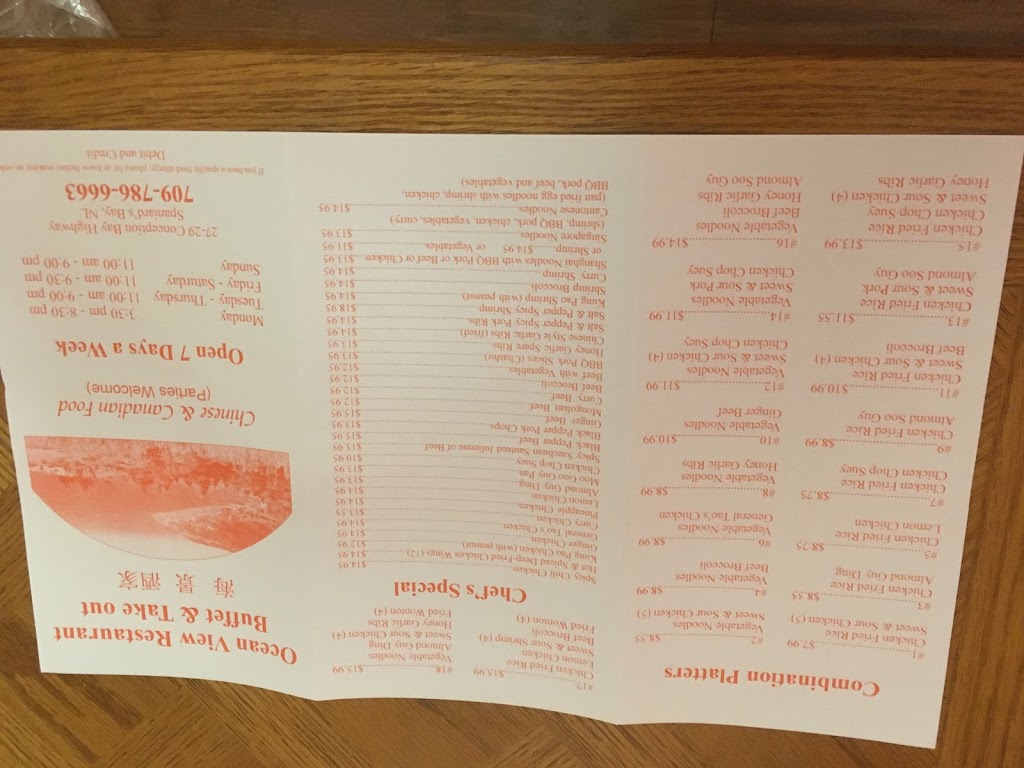 Combination Platters
#1..........$7.99
Chicken Fried Rice
Sweet & Sour Chicken (5)
#3..........$8.55
Chicken Fried Rice
Almond Guy Ding
#5..........$8.75
Chicken Fried Rice
Lemon Chicken
#7..........$8.75
Chicken Fried Rice
Chicken Chop Suey
#9..........$8.99
Chicken Fried Rice
Almond Soo Guy
#11..........$10.99
Chicken Fried Rice
Sweet & Sour Chicken (4)
Beef Broccoli
#13..........$11.55
Chicken Fried Rice
Sweet & Sour Pork
Almond Soo Guy
#15..........$13.99
Chicken Fried Rice
Chicken Chop Suey
Sweet & Sour Chicken (4)
Honey Garlic Ribs
#2..........$8.55
Vegetable Noodles
Sweet & Sour Chicken (5)
#4..........$8.99
Vegetable Noodles
Beef Broccoli
#6..........$8.99
Vegetable Noodles
General Tao's Chicken
#8..........$8.99
Vegetable Noodles
Honey Garlic Ribs
#10..........$10.99
Vegetable Noodles
Ginger Beef
#12..........$11.99
Vegetable Noodles
Sweet & Sour Chicken (4)
Chicken Chop Suey
#14..........$11.99
Vegetable Noodles
Sweet & Sour Pork
Chicken Chop Suey
#16..........$14.99
Vegetable Noodles
Beef Broccoli
Honey Garlic Ribs
Almond Soo Guy
#17..........$15.99
Chicken Fried Rice
Lemon Chicken
Sweet & Sour Shrimp (4)
Beef Broccoli
Fried Wonton (4)
#18..........$15.99
Vegetable Noodles
Almond Guy Ding
Sweet & Sour Chicken (4)
Honey Garlic Ribs
Fried Wonton (4)
Chef's Special
Spicy Chili Chicken..........$14.95
Hot & Spiced Deep-Fried Chicken Wings (12)..........$14.95
Kung Pao Chicken (with peanut)..........$12.95
Ginger Chicken..........$14.95
General Tao's Chicken..........$14.95
Curry Chicken..........$13.55
Pineapple Chicken..........$14.95
Lemon Chicken..........$14.95
Almond Guy Ding..........$13.95
Moo Goo Guy Pan..........$13.95
Chicken Chop Suey..........$10.95
Spicy Szechuan Sauteed Julienne of Beef..........$15.95
Black Pepper Beef..........$15.95
Black Pepper Pork Chops..........$13.95
Ginger Beef..........$15.95
Mongolian Beef..........$12.95
Curry Beef..........$12.95
Beef Broccoli..........$12.95
Beef with Vegetables..........$12.95
BBQ Pork Slices (Chashu)..........$13.95
Honey Garlic Spare Ribs..........$13.95
Chinese Style Garlic Ribs (fried)..........$14.95
Salt & Pepper Spicy Pork Ribs..........$14.95
Salt & Pepper Spicy Shrimp..........$18.95
Kung Pao Shrimp (with peanut)..........$14.95
Shrimp Broccoli..........$14.95
Curry Shrimp..........$14.95
Shanghai Noodles with BBQ Pork or Beef or Chicken..........$13.95
or Shrimp..........$14.95 or Vegetables..........$11.95
Singapore Noodles..........$13.95
(shrimp, BBQ pork, chicken, vegetables, curry)
Cantonese Noodles..........$14.95
(pan fried egg noodles with shrimp, chicken,
BBQ pork, beef and vegetables)
Ocean View Restaurant
Buffet & Take out
海景酒家
Chinese & Canadian Food
(Parties Welcome)
Open 7 Days a Week
Monday 3:30 pm - 8:30 pm
Tuesday - Thursday 11:00 am - 9:00 pm
Friday - Saturday 11:00 am - 9:30 pm
Sunday 11:00 am - 9:00 pm
27-29 Conception Bay Highway
Spaniard's Bay, NL
709-786-6663
If you have a specific food allergy, please let us know before making an order
Debit and Credit